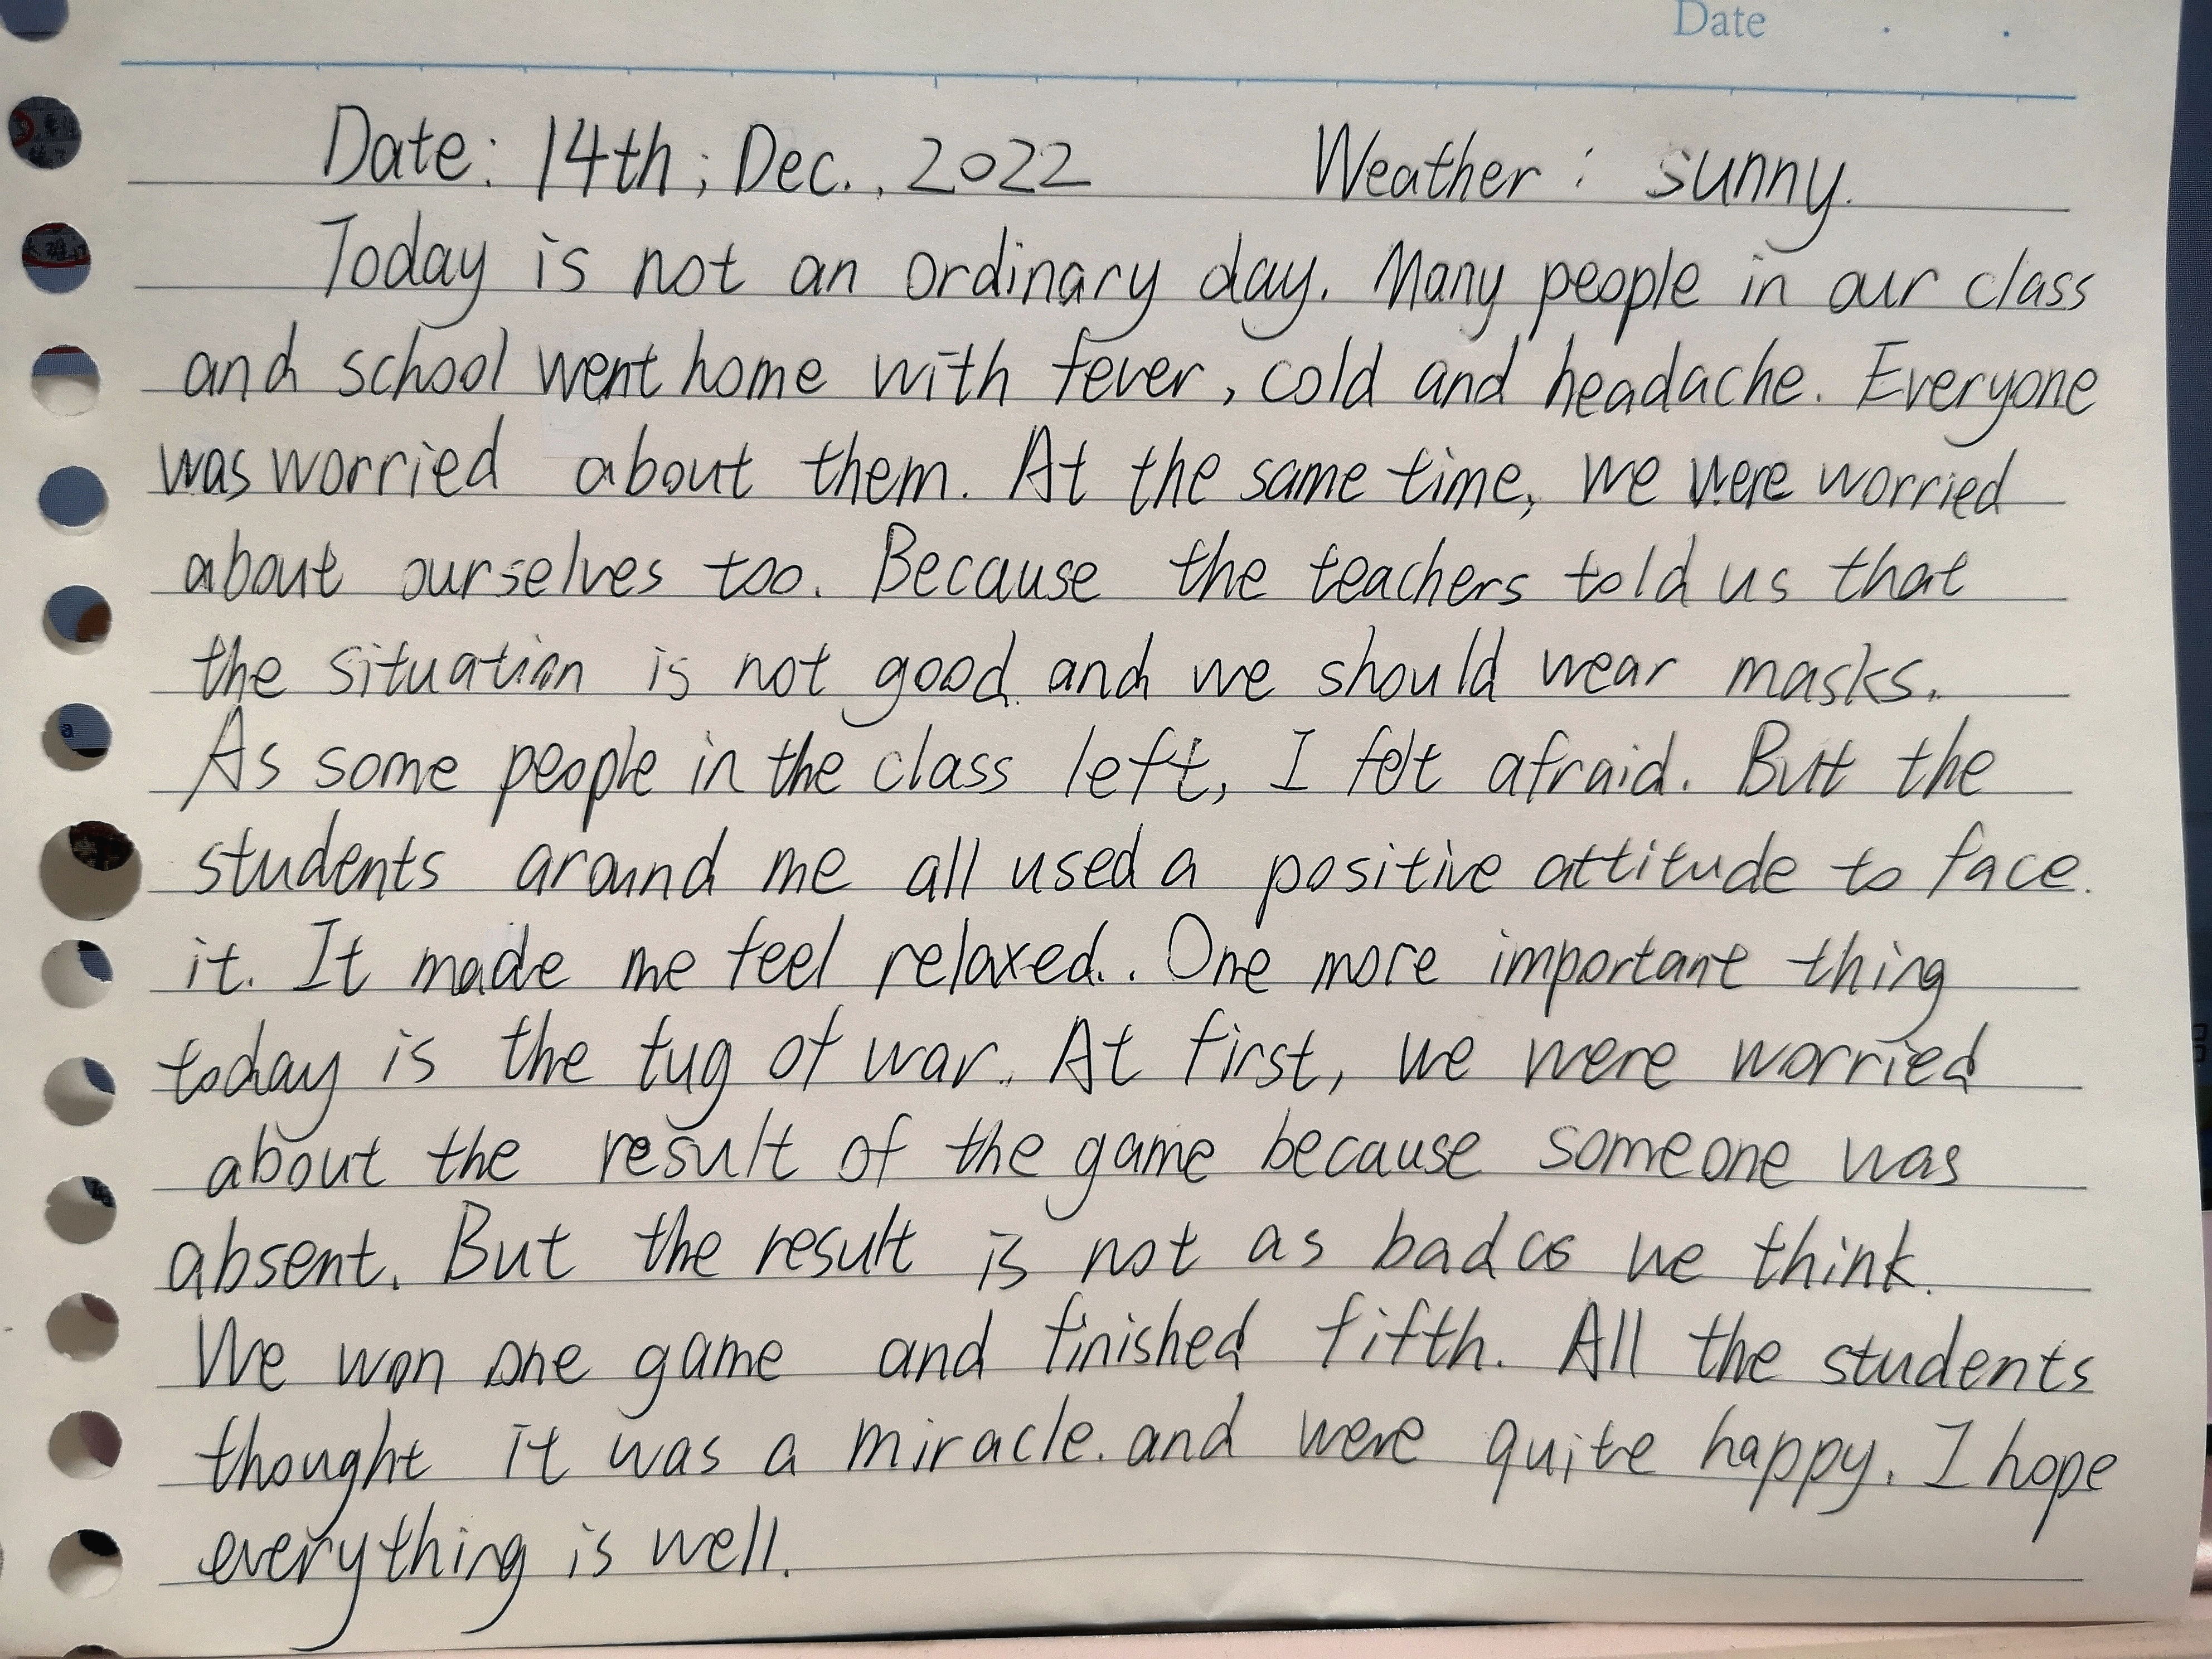 Date
Date: 14th; Dec., 2022 Weather: sunny.
Today is not an ordinary day. Many people in our class
and school went home with fever, cold and headache. Everyone
was worried about them. At the same time, we were worried
about ourselves too. Because the teachers told us that
the situation is not good and we should wear masks.
As some people in the class left, I felt afraid. But the
students around me all used a positive attitude to face.
it. It made me feel relaxed.. One more important thing
today is the tug of war. At first, we were worried
about the result of the game because someone was
absent. But the result is not as bad as we think.
We won one game and finished fifth. All the students
thought it was a miracle. and were quite happy. I hope
everything is well.